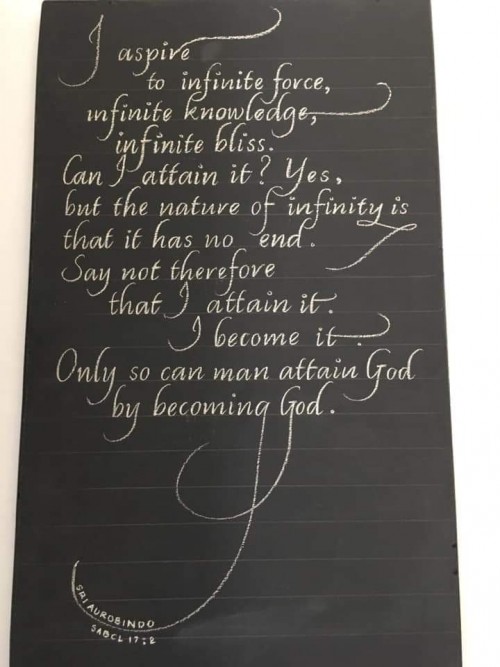 I aspire
to infinite force,
infinite knowledge,
infinite bliss.
Can I attain it? Yes,
but the nature of infinity is
that it has no end.
Say not therefore
that I attain it.
I become it.
Only so can man attain God
by becoming God.
SRI AUROBINDO
SABCL 17:2